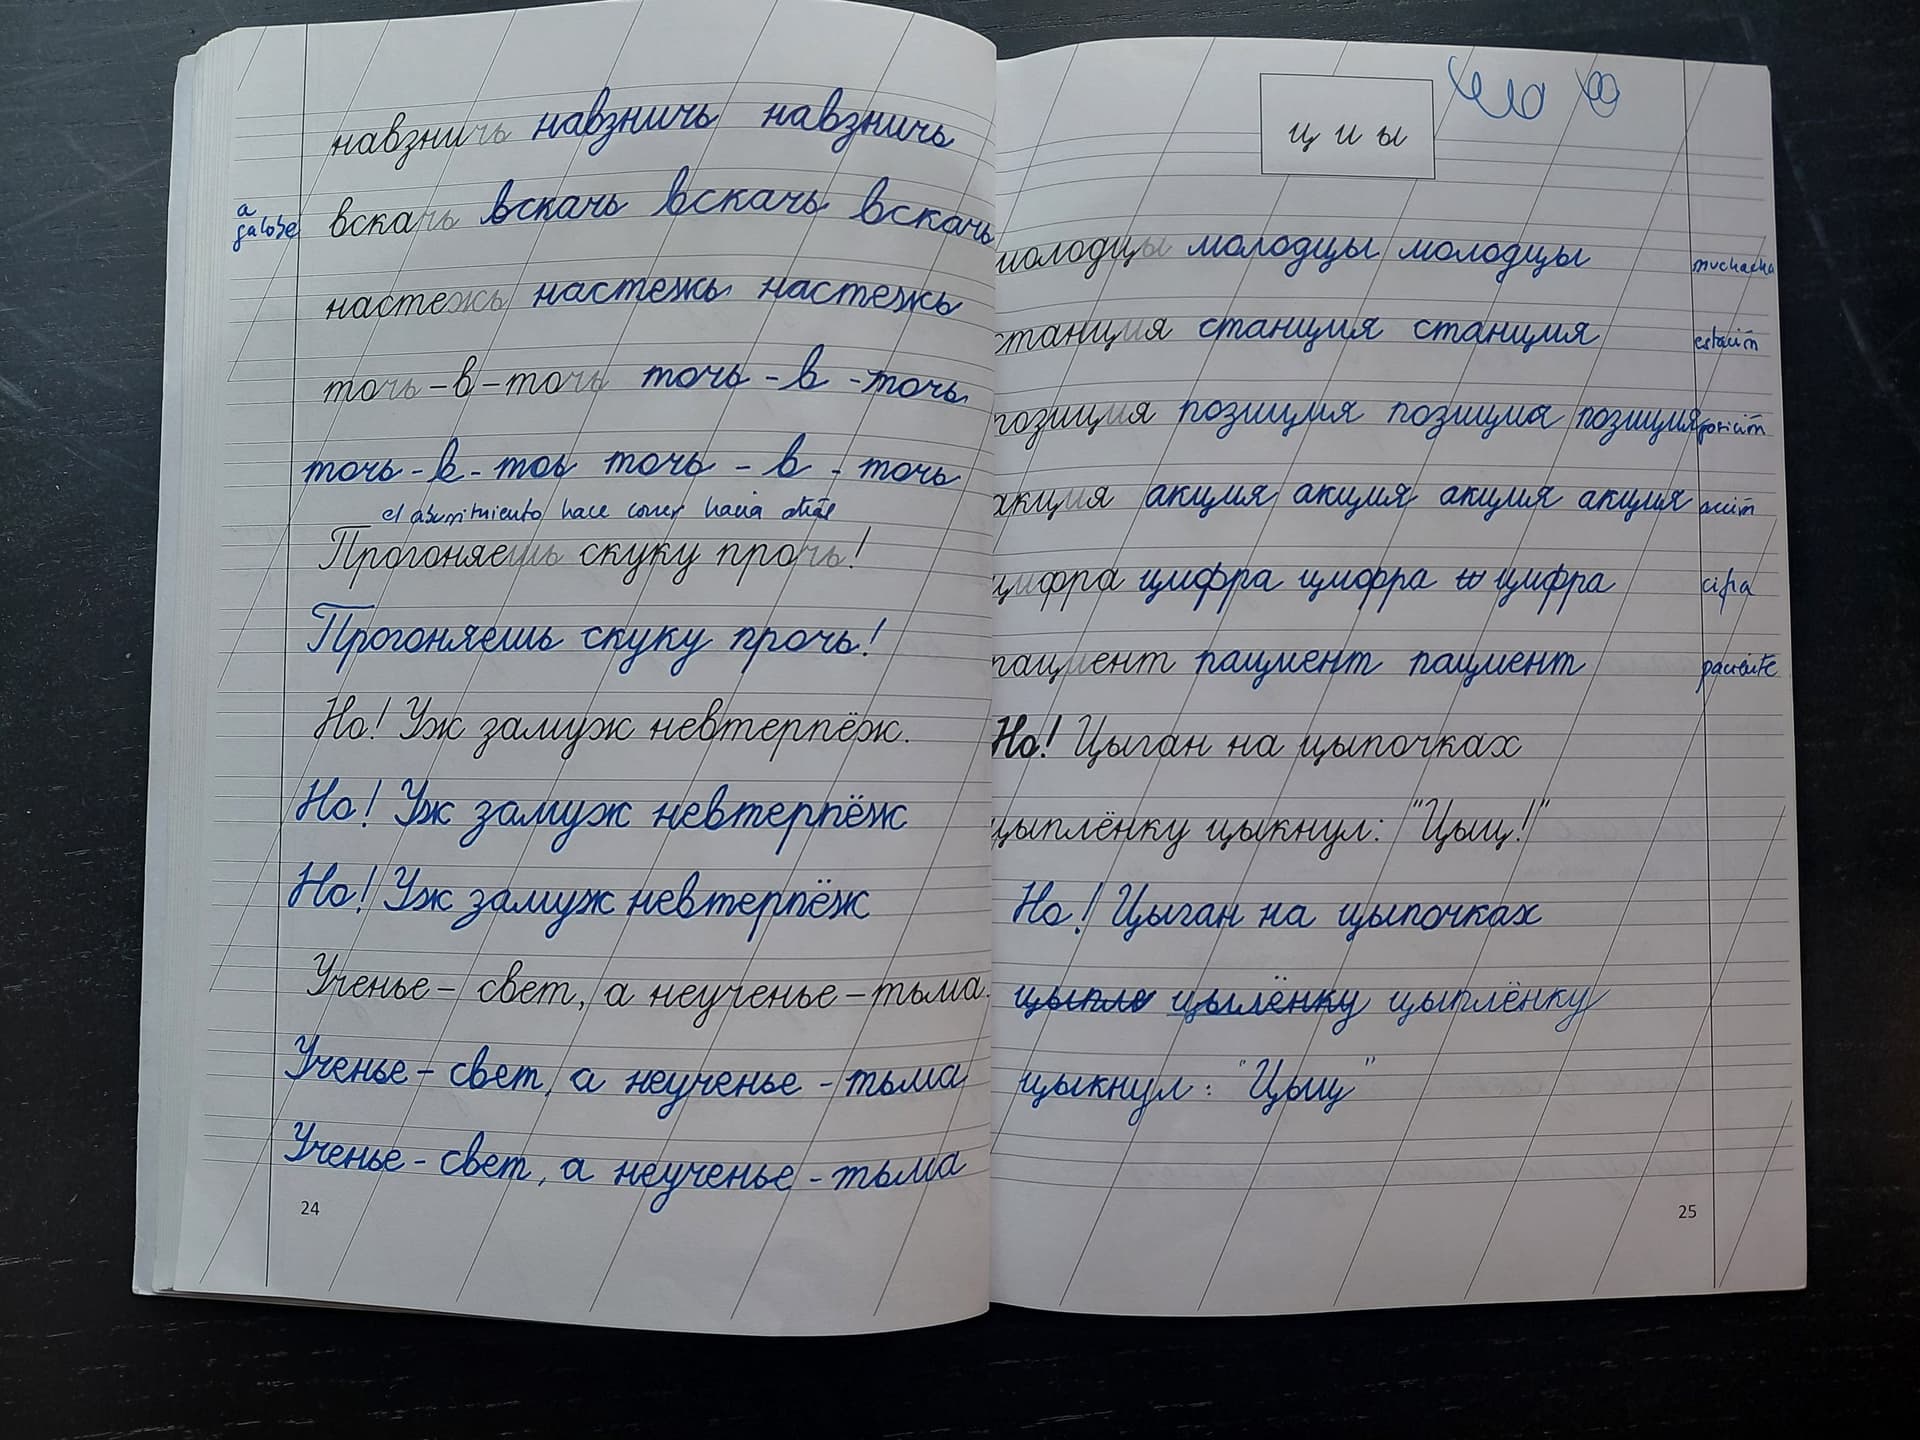 навзничь навзничь навзничь
a galope
вскачь вскачь вскачь вскачь
настежь настежь настежь
точь-в-точь точь-в-точь
точь-в-тоь точь-в-точь
el aburrimiento hace correr hacia atrás
Прогоняешь скуку прочь!
Прогоняешь скуку прочь!
Но! Уж замуж невтерпёж.
Но! Уж замуж невтерпёж
Но! Уж замуж невтерпёж
Ученье – свет, а неученье – тьма.
Ученье – свет, а неученье – тьма
Ученье – свет, а неученье – тьма
24
ц и ы
молодцы молодцы молодцы
станция станция станция estación
позиция позиция позиция позиция posición
акция акция акция акция акция acción
цифра цифра цифра цифра cifra
пациент пациент пациент paciente
Но! Цыган на цыпочках
цыплёнку цыкнул: "Цыц!"
Но! Цыган на цыпочках
цыпле цылёнку цыплёнку
цыкнул: "Цыц"
25